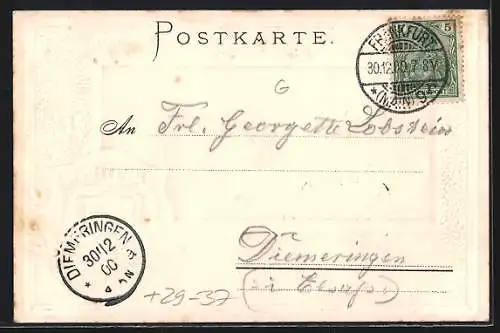 POSTKARTE.
5
FRANKFURT
30.12.00.7-8V.
* (MAIN) 9
G
An Frl. Georgette Lobstein
Diemeringen
(in Elsaß)
DIEMERINGEN
30/12
00
+29-37